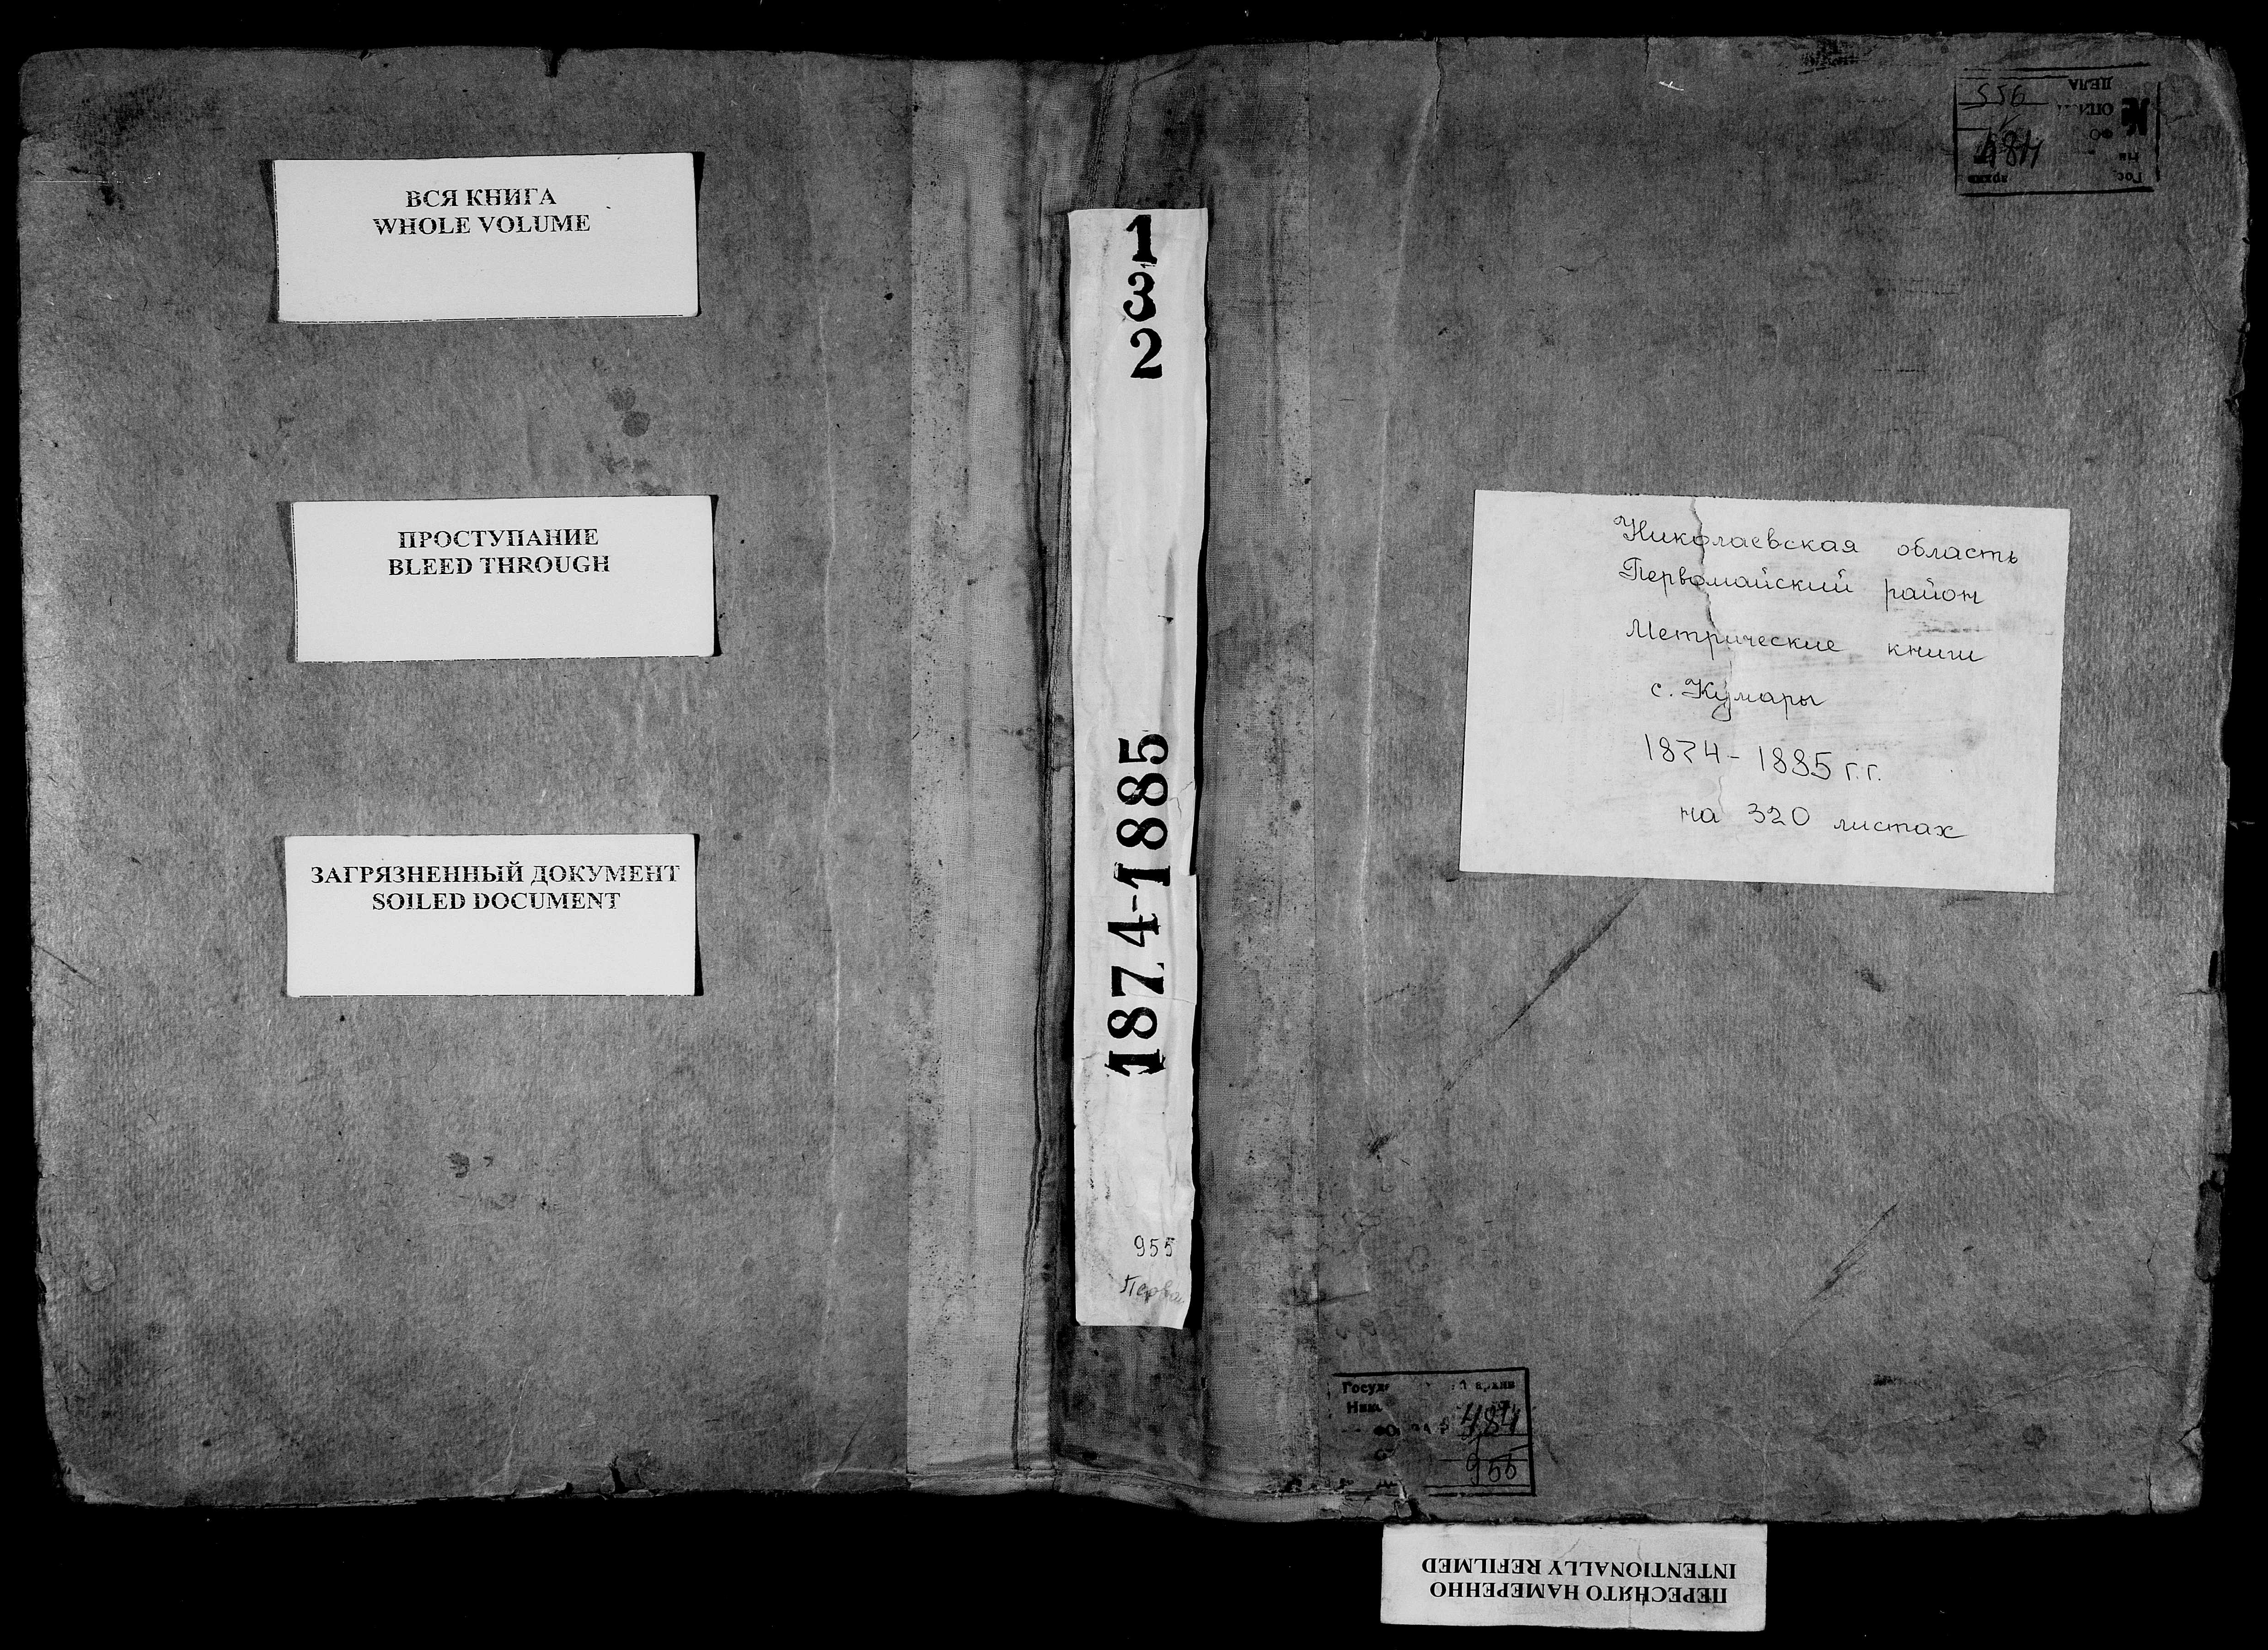 ВСЯ КНИГА
WHOLE VOLUME
ПРОСТУПАНИЕ
BLEED THROUGH
ЗАГРЯЗНЕННЫЙ ДОКУМЕНТ
SOILED DOCUMENT
132
1874-1885
955
ДЕЛА
№
484
архив
Гос
Николаевская область
Первомайский район
Метрические книги
с. Кумары
1874-1885 г.г.
на 320 листах
архив
484
955
ПЕРЕСНЯТО НАМЕРЕННО
INTENTIONALLY REFILMED